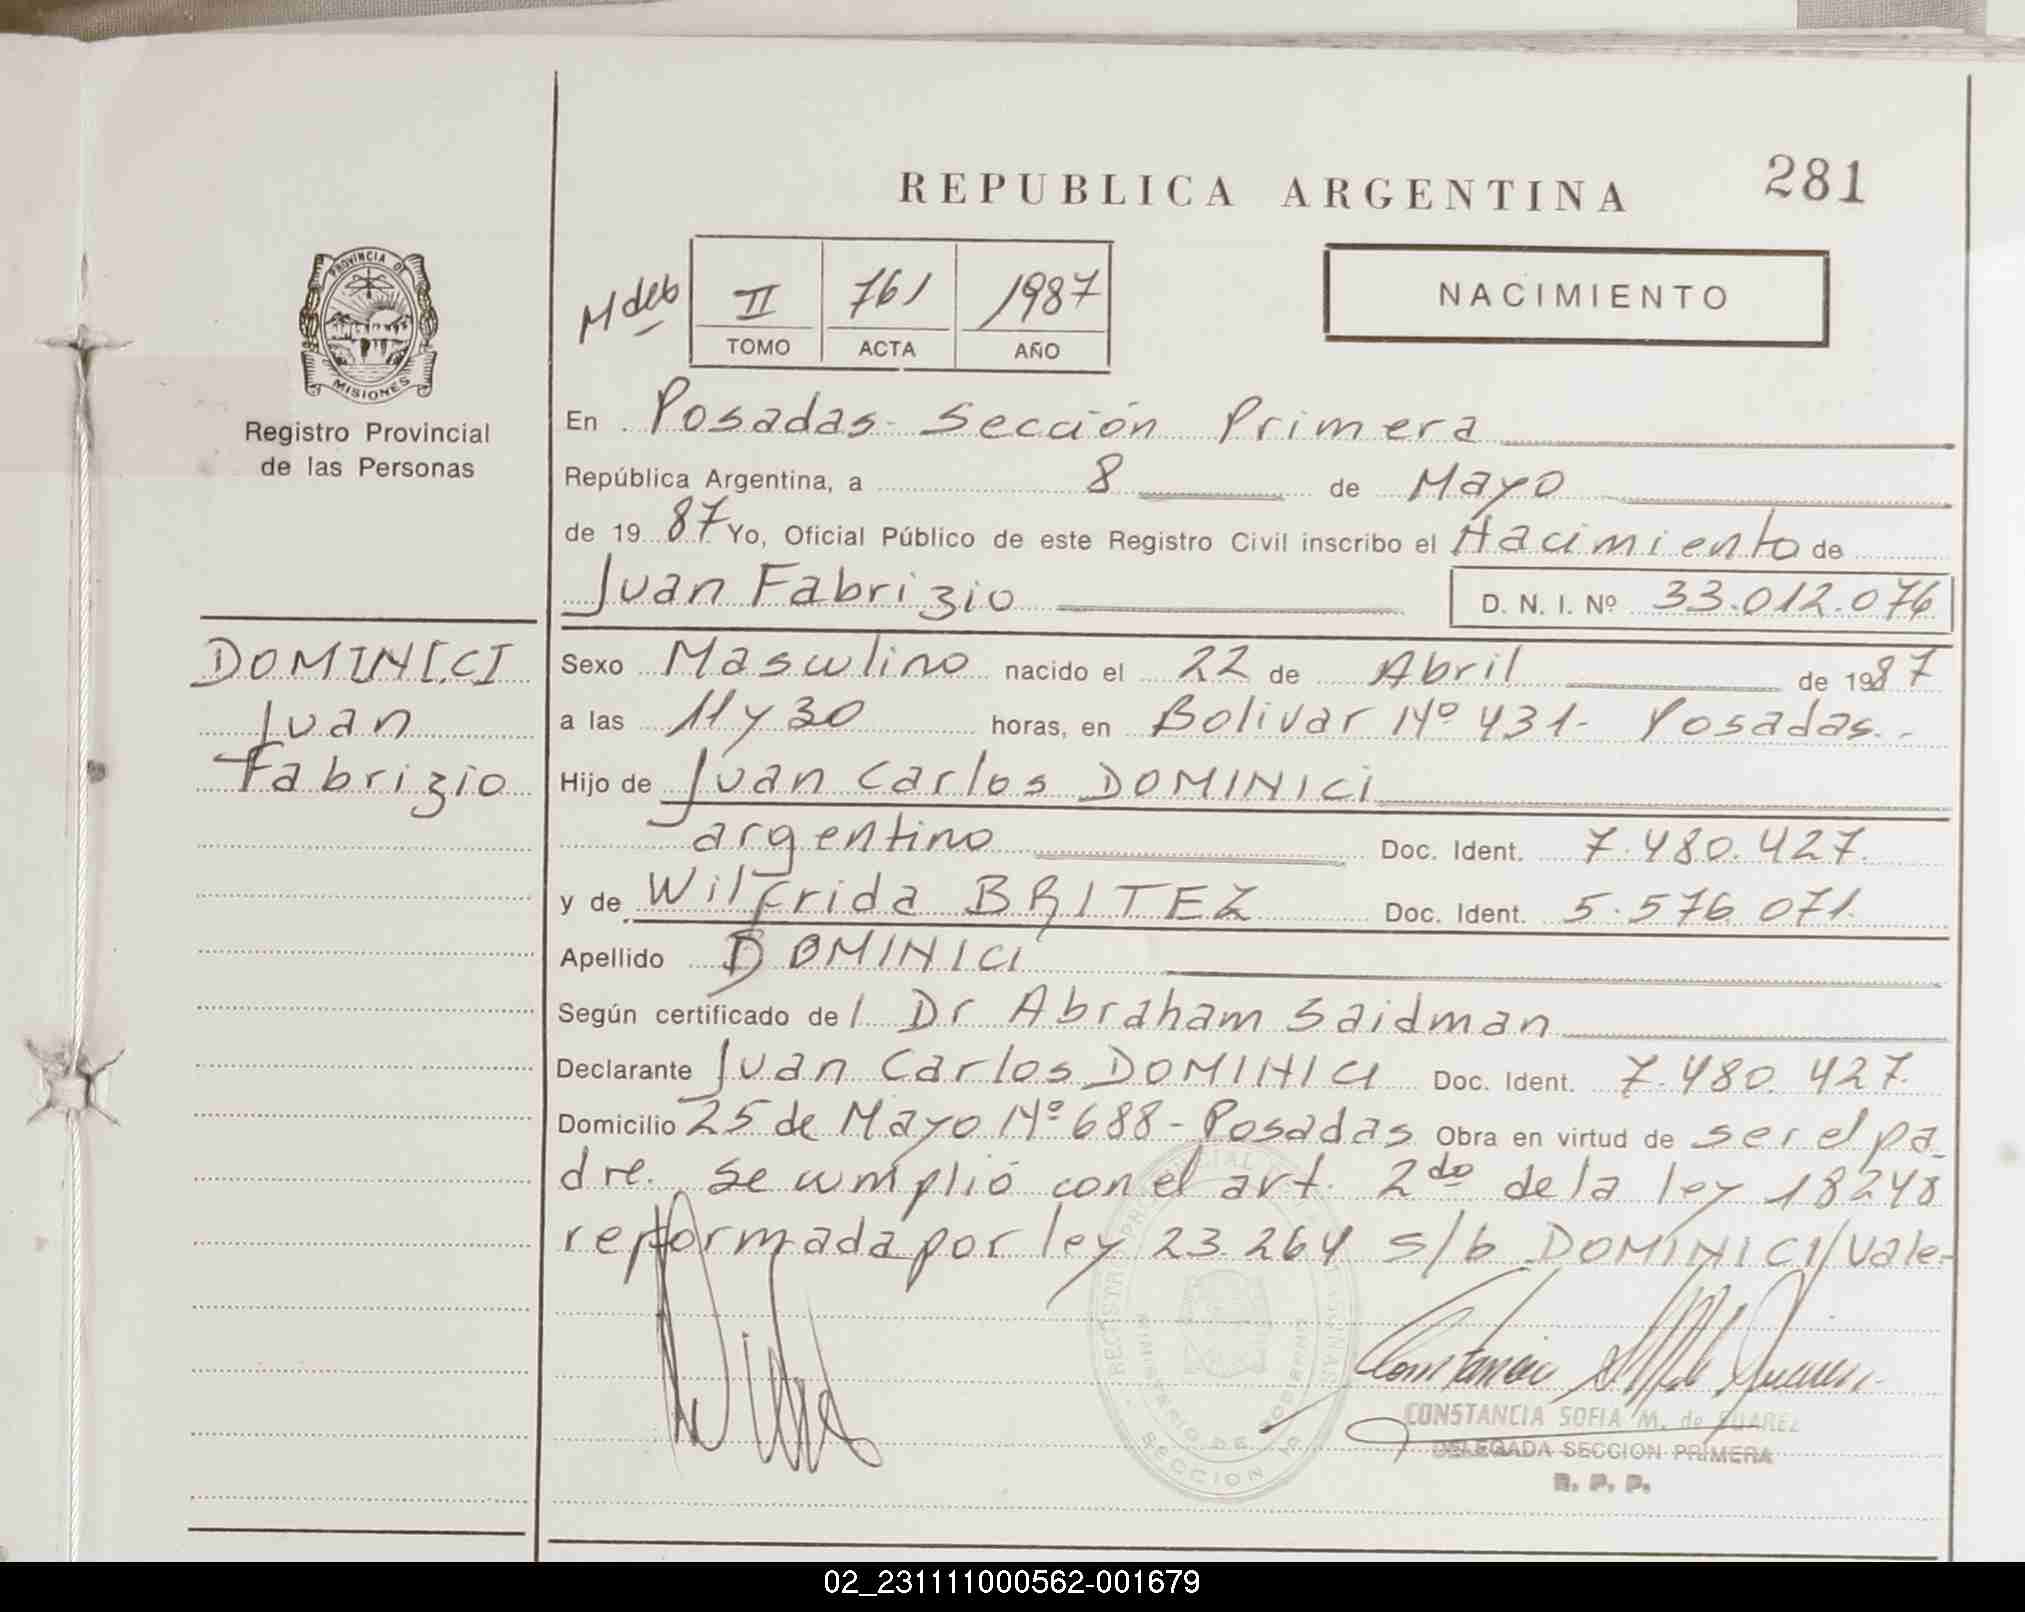 REPUBLICA ARGENTINA
281
PROVINCIA DE
MISIONES
Registro Provincial
de las Personas
M deb
II
761
1987
TOMO
ACTA
AÑO
NACIMIENTO
En Posadas - Sección Primera
República Argentina, a 8 de Mayo
de 1987 Yo, Oficial Público de este Registro Civil inscribo el Nacimiento de
Juan Fabrizio
D. N. I. Nº 33.012.076
DOMINICI
Juan
Fabrizio
Sexo Masculino nacido el 22 de Abril de 1987
a las 11 y 30 horas, en Bolivar Nº 431 - Posadas.-
Hijo de Juan Carlos DOMINICI
argentino Doc. Ident. 7.480.427.
y de Wilfrida BRITEZ Doc. Ident. 5.576.071.
Apellido DOMINICI
Según certificado del Dr Abraham Saidman
Declarante Juan Carlos DOMINICI Doc. Ident. 7.480.427.
Domicilio 25 de Mayo Nº 688 - Posadas Obra en virtud de ser el pa
dre. Se cumplió con el art. 2do de la ley 18248
reformada por ley 23.264 s/b DOMINICI/Vale-
CONSTANCIA SOFIA M. de SUAREZ
DELEGADA SECCION PRIMERA
R. P. P.
02_231111000562-001679